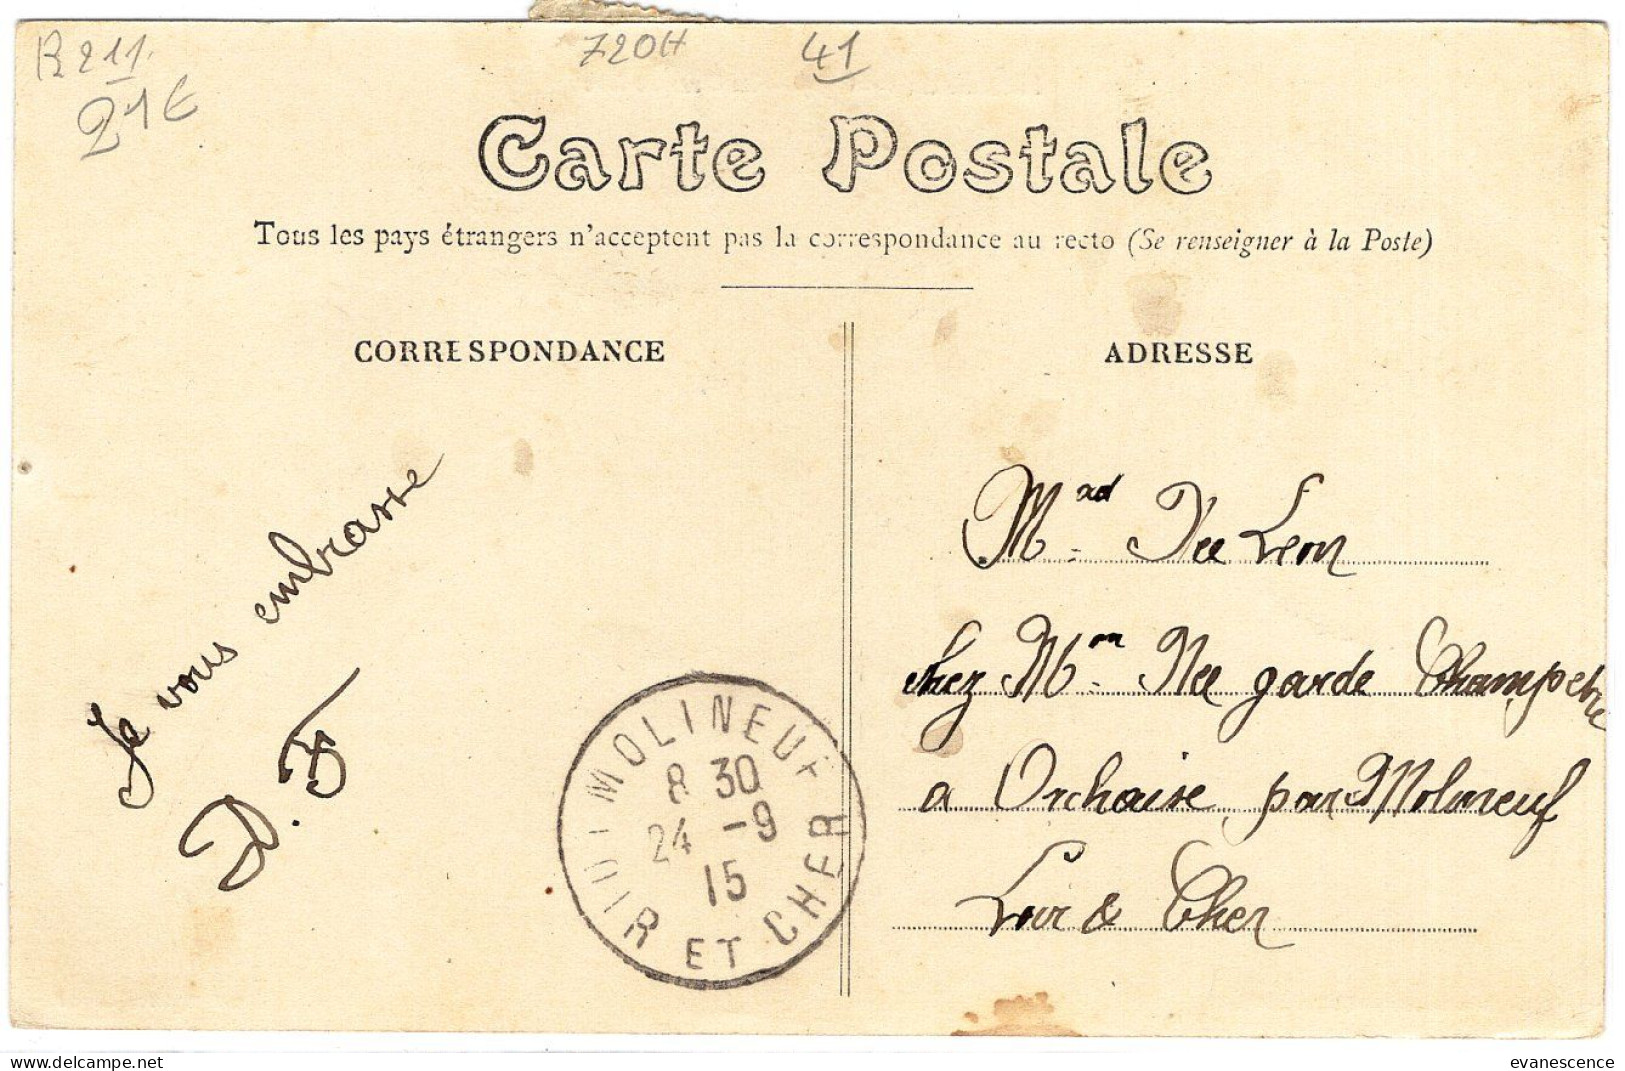 R 211
21€
720H
41
Carte Postale
Tous les pays étrangers n'acceptent pas la correspondance au recto (Se renseigner à la Poste)
CORRESPONDANCE
ADRESSE
Je vous embrasse
D. F
MOLINEUF
8 30
24 -9
15
LOIR ET CHER
Mad Nee Leon
chez Mr Nee garde Champetre
a Orchaise par Molineuf
Loir & Cher
evanescence